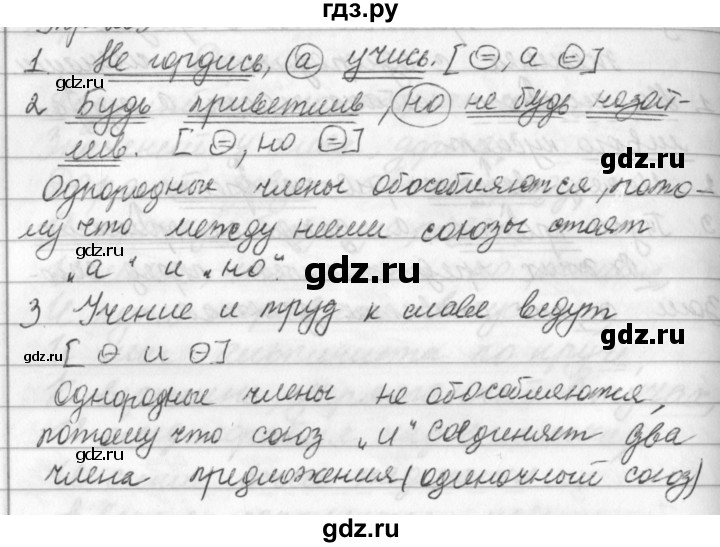 гдз.ру
1. Не гордись, а учись. [ , а ]
gdz.ru gdz.ru
2 Будь приветлив, но не будь назой-
лив. [ , но ] gdz.ru
Однородные члены обособляются, пото-
му что между ними союзы стоят
„а" и „но".
gdz.ru
3 Учение и труд к славе ведут
gdz.ru [ и ]
Однородные члены не обособляются,
gdz.ru
потому что союз „и" соединяет два
члена предложения (одиночный союз)
gdz.ru gdz.ru
gdz.ru